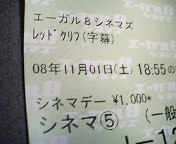 エーガル8シネマズ
レッドクリフ(字幕)
08年11月01日(土) 18:55の
シネマデー ¥1,000*
シネマ⑤ (一般